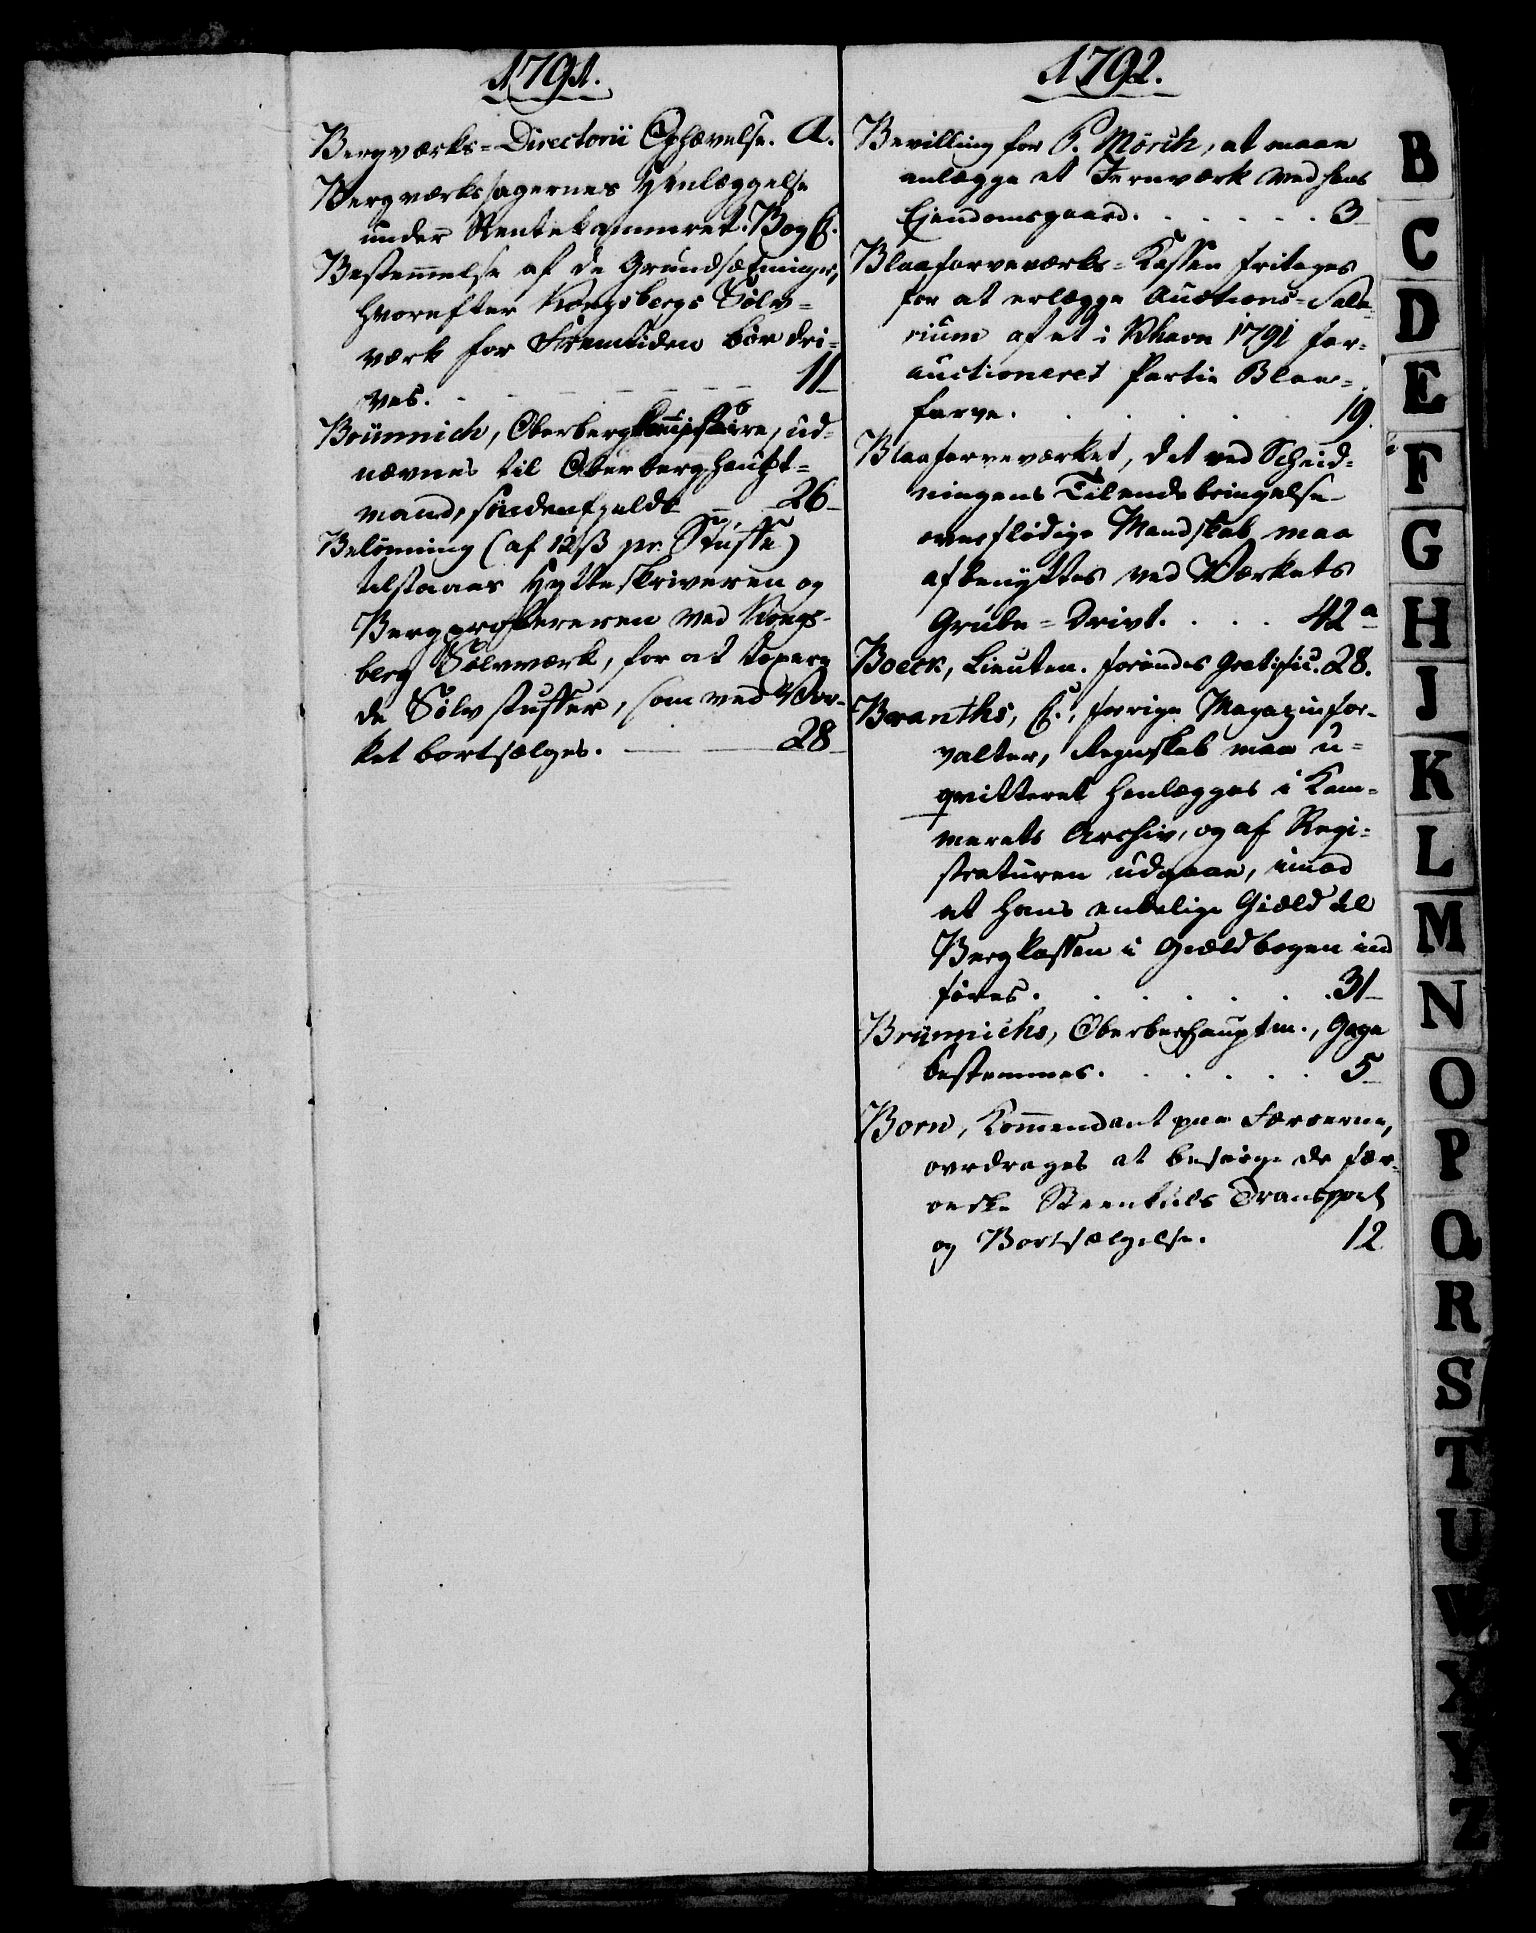 1791.
Bergværks=Directorii Ophævelse. A.
Bergværkssagernes Henlæggelse
under Rentekammeret. Bog E.
Bestemelse af de Grundsætninger,
hvorefter Kongsbergs Sölv=
værk for Fremtiden bör dri=
ves. 11
Brünnich, Oberberg, ud=
nævnes til Oberberghaupt=
mand, söndenfields 26
Belönning (af 12 ß pr. Stuffe)
tilstaaes Hytteskriveren og
Bergprobereren ved Kongs=
berg Sölvværk, for at taxere
de Sölvstuffer, som ved Vær=
ket bortsælges. 28
1792.
Bevilling for P. Mörch, at maae
anlægge et Jernværk ved hans
Eiendomsgaard. 3
Blaafarveværks=Kassen fritages
for at erlægge Auctions=Sala
rium af et i Khavn 1791 for=
auctioneret Partie Blaae=
farve. 19
Blaafarveværket, det ved Scheid=
ningens Tilendebringelse
overflödige Mandskab maa
afbenyttes ved Værkets
Grube=Drivt. 42 a
Boeck, Lieuten. forundes Gratific. 28.
Branths, E., forrige Magazinfor=
valter, Regnskab maa u=
qvitteret henlægges i Kam=
merets Archiv, og af Regi=
straturen udgaae, imod
at hans endelige Giæld til
Bergkassen i Gieldbogen ind
föres. 31
Brünnichs, Oberberghauptm., Gage
bestemmes. 5
Born, Komendant paa Færoerne,
overdrages at besörge de fær=
oeske Steenkuls Transport
og Bortsælgelse. 12
B
C
D
E
F
G
H
J
K
L
M
N
O
P
Q
R
S
T
U
W
X
Y
Z